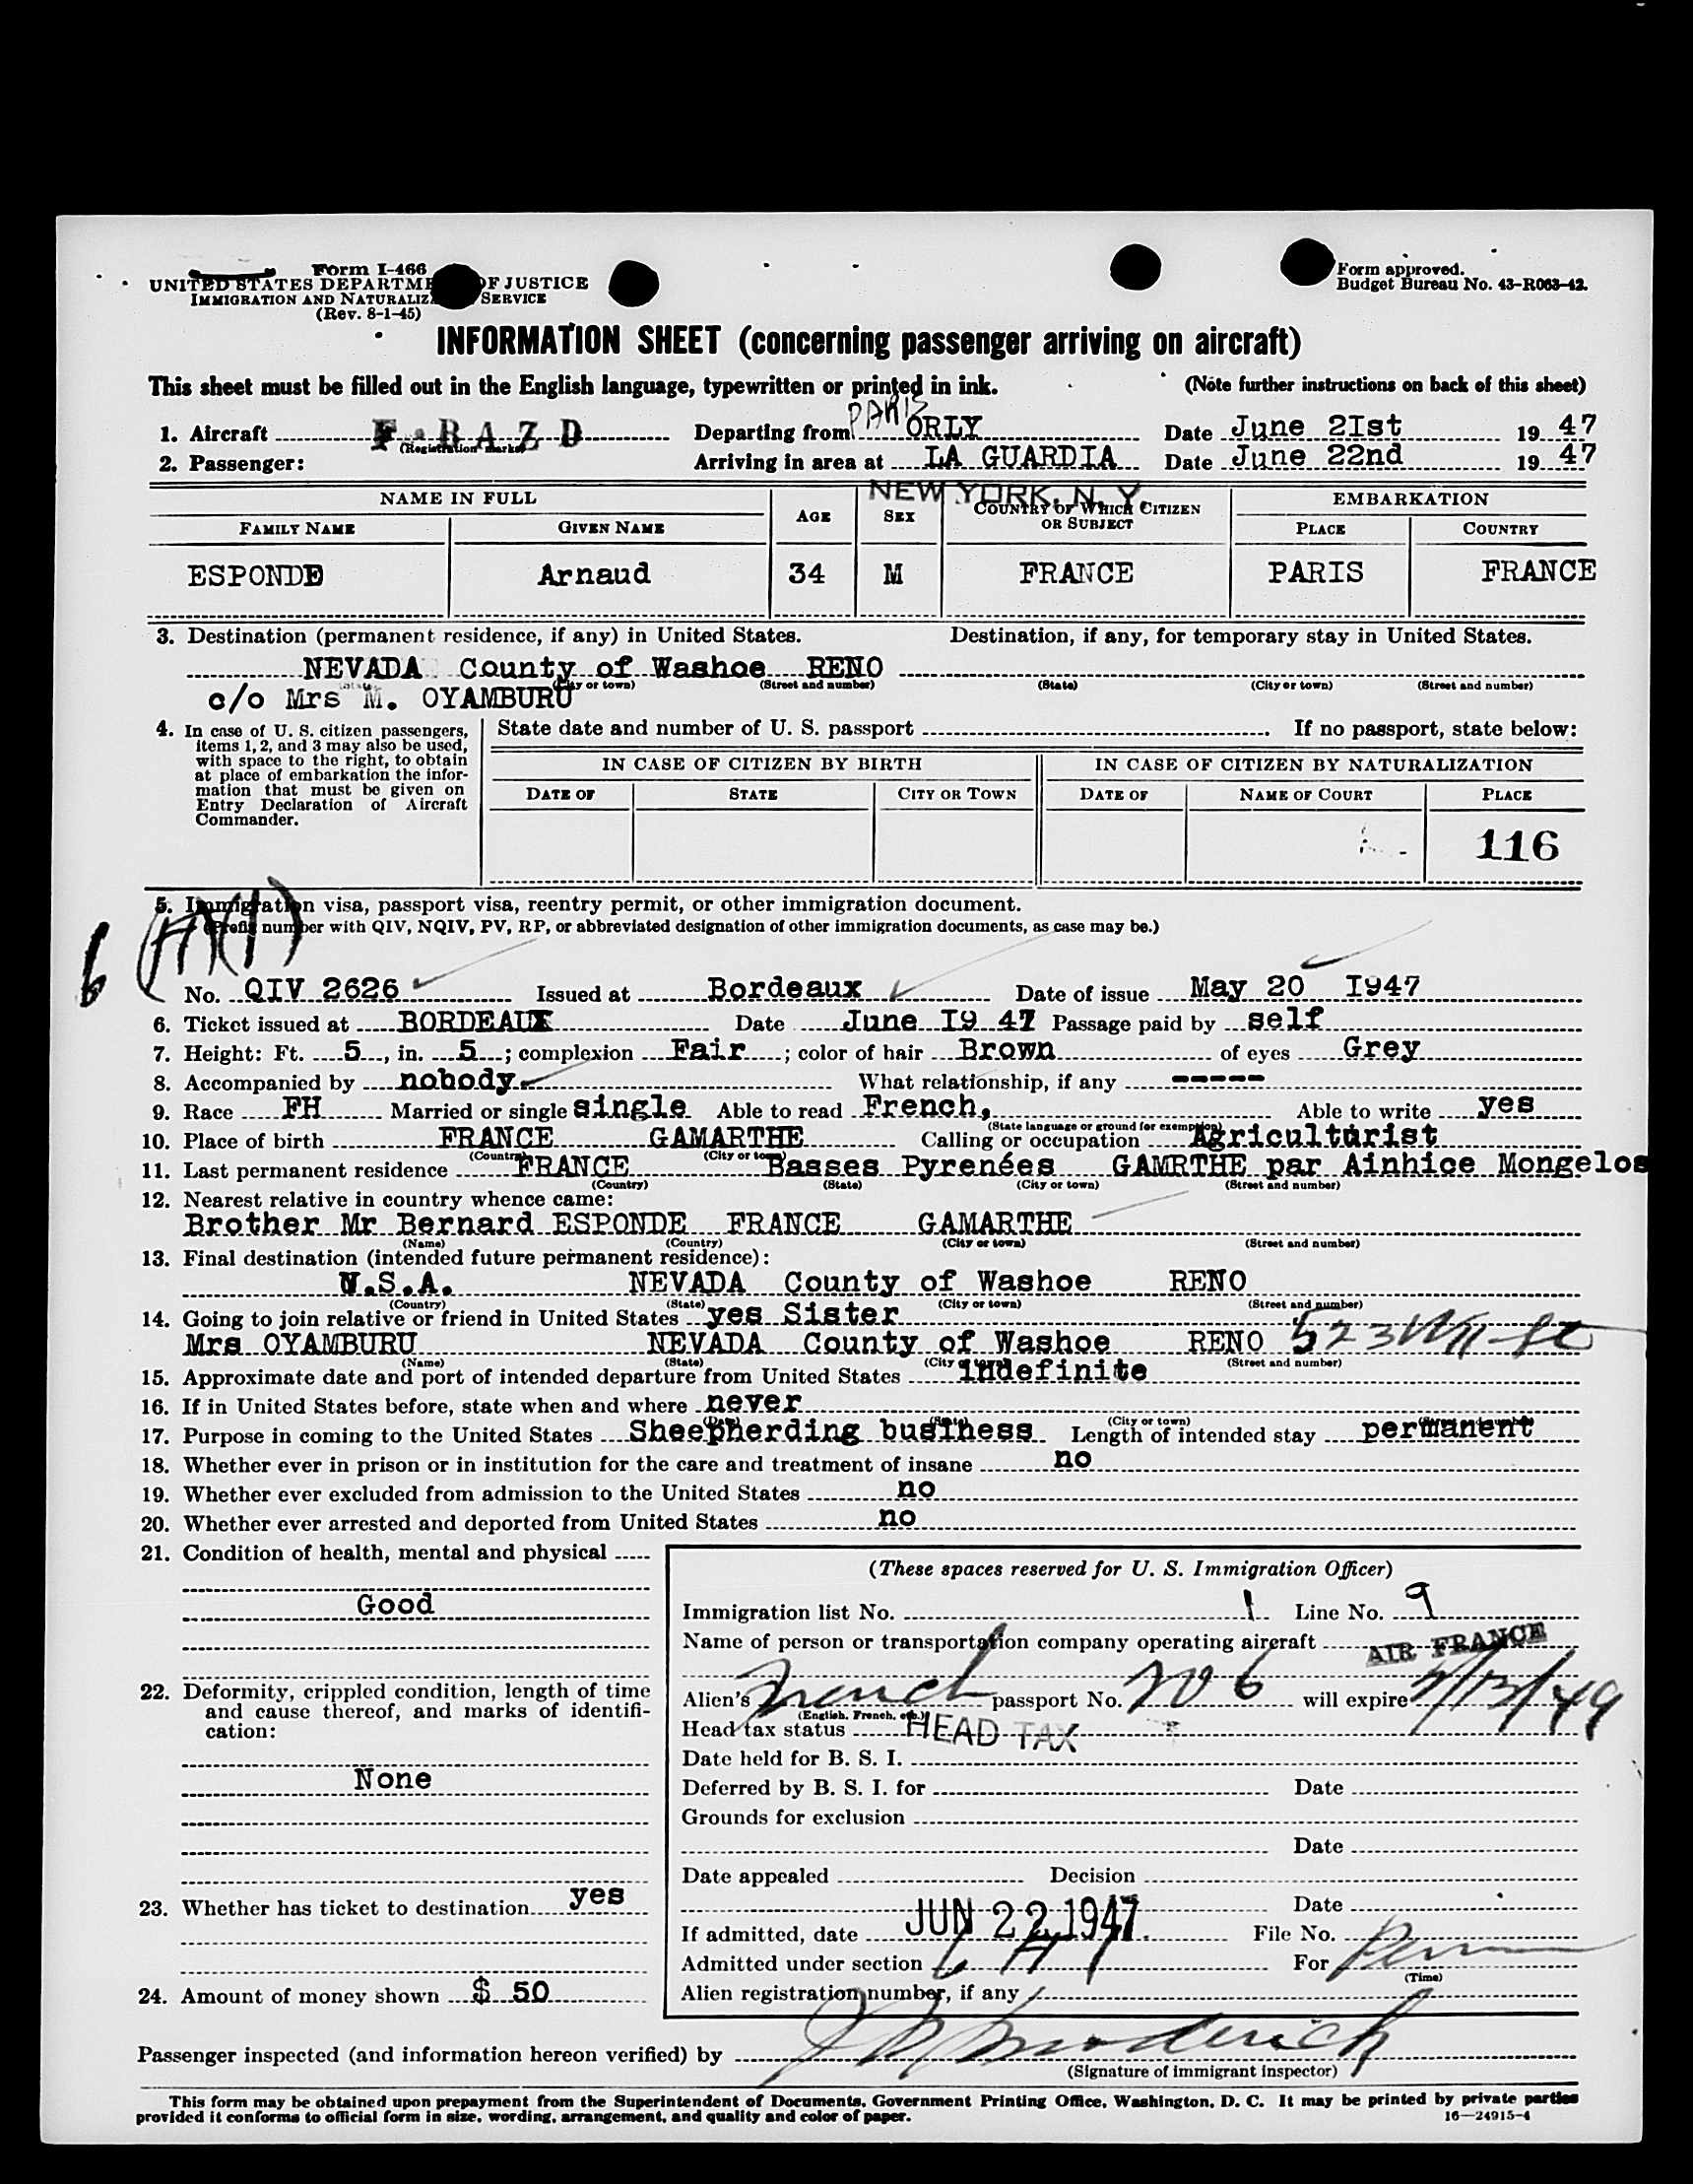 Form I-466
UNITED STATES DEPARTME OF JUSTICE
IMMIGRATION AND NATURALIZ SERVICE
(Rev. 8-1-45)
Form approved.
Budget Bureau No. 43-R063-42.
INFORMATION SHEET (concerning passenger arriving on aircraft)
This sheet must be filled out in the English language, typewritten or printed in ink. (Note further instructions on back of this sheet)
1. Aircraft F-BAZD Departing from PARIS ORLY Date June 2Ist 1947
(Registration marks)
2. Passenger: Arriving in area at LA GUARDIA Date June 22nd 1947
NEW YORK, N. Y.
NAME IN FULL AGE SEX COUNTRY OF WHICH CITIZEN OR SUBJECT EMBARKATION
FAMILY NAME GIVEN NAME PLACE COUNTRY
ESPONDE Arnaud 34 M FRANCE PARIS FRANCE
3. Destination (permanent residence, if any) in United States. Destination, if any, for temporary stay in United States.
NEVADA County of Washoe RENO
(City or town) (Street and number) (State) (City or town) (Street and number)
c/o Mrs M. OYAMBURU
4. In case of U. S. citizen passengers,
items 1, 2, and 3 may also be used,
with space to the right, to obtain
at place of embarkation the infor-
mation that must be given on
Entry Declaration of Aircraft
Commander.
State date and number of U. S. passport If no passport, state below:
IN CASE OF CITIZEN BY BIRTH IN CASE OF CITIZEN BY NATURALIZATION
DATE OF STATE CITY OR TOWN DATE OF NAME OF COURT PLACE
116
5. Immigration visa, passport visa, reentry permit, or other immigration document.
(Prefix number with QIV, NQIV, PV, RP, or abbreviated designation of other immigration documents, as case may be.)
6 (A)(1)
No. QIV 2626 Issued at Bordeaux Date of issue May 20 I947
6. Ticket issued at BORDEAUX Date June I9 47 Passage paid by self
7. Height: Ft. 5, in. 5; complexion Fair; color of hair Brown of eyes Grey
8. Accompanied by nobody. What relationship, if any -----
9. Race FH Married or single single Able to read French, Able to write yes
(State language or ground for exemption)
10. Place of birth FRANCE GAMARTHE Calling or occupation Agriculturist
(Country) (City or town)
11. Last permanent residence FRANCE Basses Pyrenées GAMRTHE par Ainhice Mongelos
(Country) (State) (City or town) (Street and number)
12. Nearest relative in country whence came:
Brother Mr Bernard ESPONDE FRANCE GAMARTHE
(Name) (Country) (City or town) (Street and number)
13. Final destination (intended future permanent residence):
U.S.A. NEVADA County of Washoe RENO
(Country) (State) (City or town) (Street and number)
14. Going to join relative or friend in United States yes Sister
Mrs OYAMBURU NEVADA County of Washoe RENO 523
(Name) (State) (City or town) (Street and number)
15. Approximate date and port of intended departure from United States indefinite
16. If in United States before, state when and where never
(Date) (State) (City or town) (Street and number)
17. Purpose in coming to the United States Sheepherding business Length of intended stay permanent
18. Whether ever in prison or in institution for the care and treatment of insane no
19. Whether ever excluded from admission to the United States no
20. Whether ever arrested and deported from United States no
21. Condition of health, mental and physical
Good
22. Deformity, crippled condition, length of time
and cause thereof, and marks of identifi-
cation:
None
23. Whether has ticket to destination yes
24. Amount of money shown $ 50
(These spaces reserved for U. S. Immigration Officer)
Immigration list No. 1 Line No. 9
Name of person or transportation company operating aircraft AIR FRANCE
Alien's French passport No. 206 will expire
(English, French, etc.)
Head tax status HEAD TAX
Date held for B. S. I.
Deferred by B. S. I. for Date
Grounds for exclusion
Date
Date appealed Decision
Date
If admitted, date JUN 22 1947 File No.
Admitted under section 6 A 1 For Perm
(Time)
Alien registration number, if any
Passenger inspected (and information hereon verified) by
(Signature of immigrant inspector)
This form may be obtained upon prepayment from the Superintendent of Documents, Government Printing Office, Washington, D. C. It may be printed by private parties
provided it conforms to official form in size, wording, arrangement, and quality and color of paper.
16—24915-4